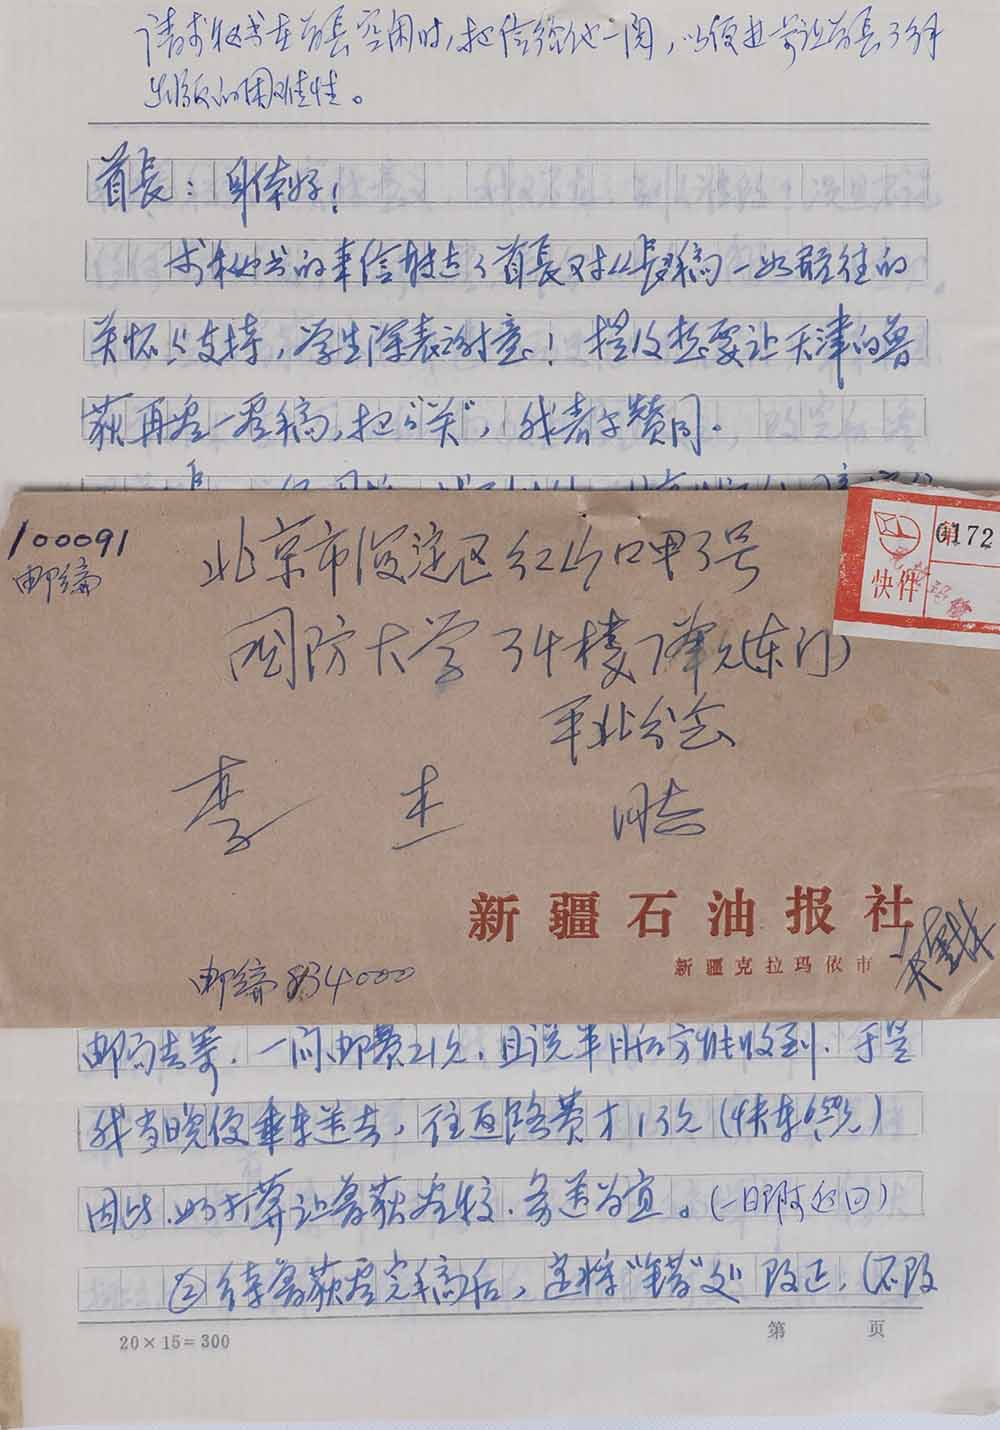 请求秘书在首长空闲时,把信给他一阅,以便进一步让首长了解
出版的困难性。
首長:身体好!
求秘书的来信转达了首長对长稿一如既往的
关怀与支持,学生深表谢意!提及想要让天津的鲁
荻再参一参稿,把"关",我意亦赞同。
100091
邮编
北京市海淀区红山口甲3号
国防大学34楼7单元(东门)
平北分会
李 杰 同志
快件
第0172
新疆石油报社
新疆克拉玛依市
邮编 834000
邮局去寄,一问邮费21元,且说半月后方能收到,于是
我当晚便乘车送去,往返路费才13元(快车
因此,如打算让鲁荻参校,务送为宜。(一日即可返回)
②待鲁荻参完稿后,定将"错"处改正,(不改
20×15=300
第 页